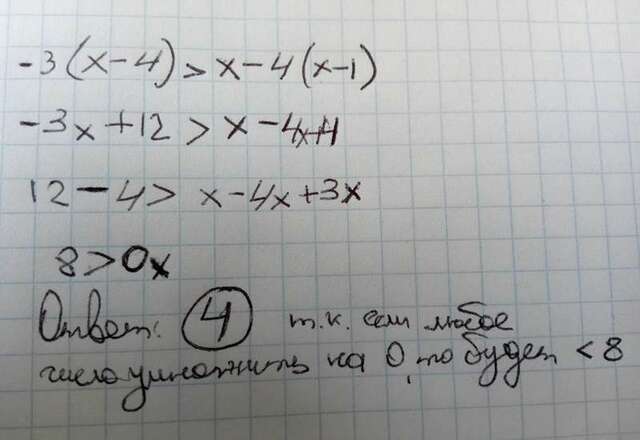 -3(x-4)>x-4(x-1)
-3x+12>x-4x+4
12-4>x-4x+3x
8>0x
Ответ: 4 т.к. если любое
число умножить на 0, то будет <8